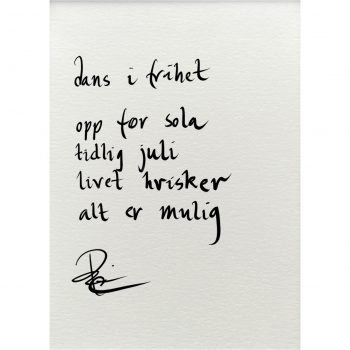 dans i frihet
opp før sola
tidlig juli
livet hvisker
alt er mulig